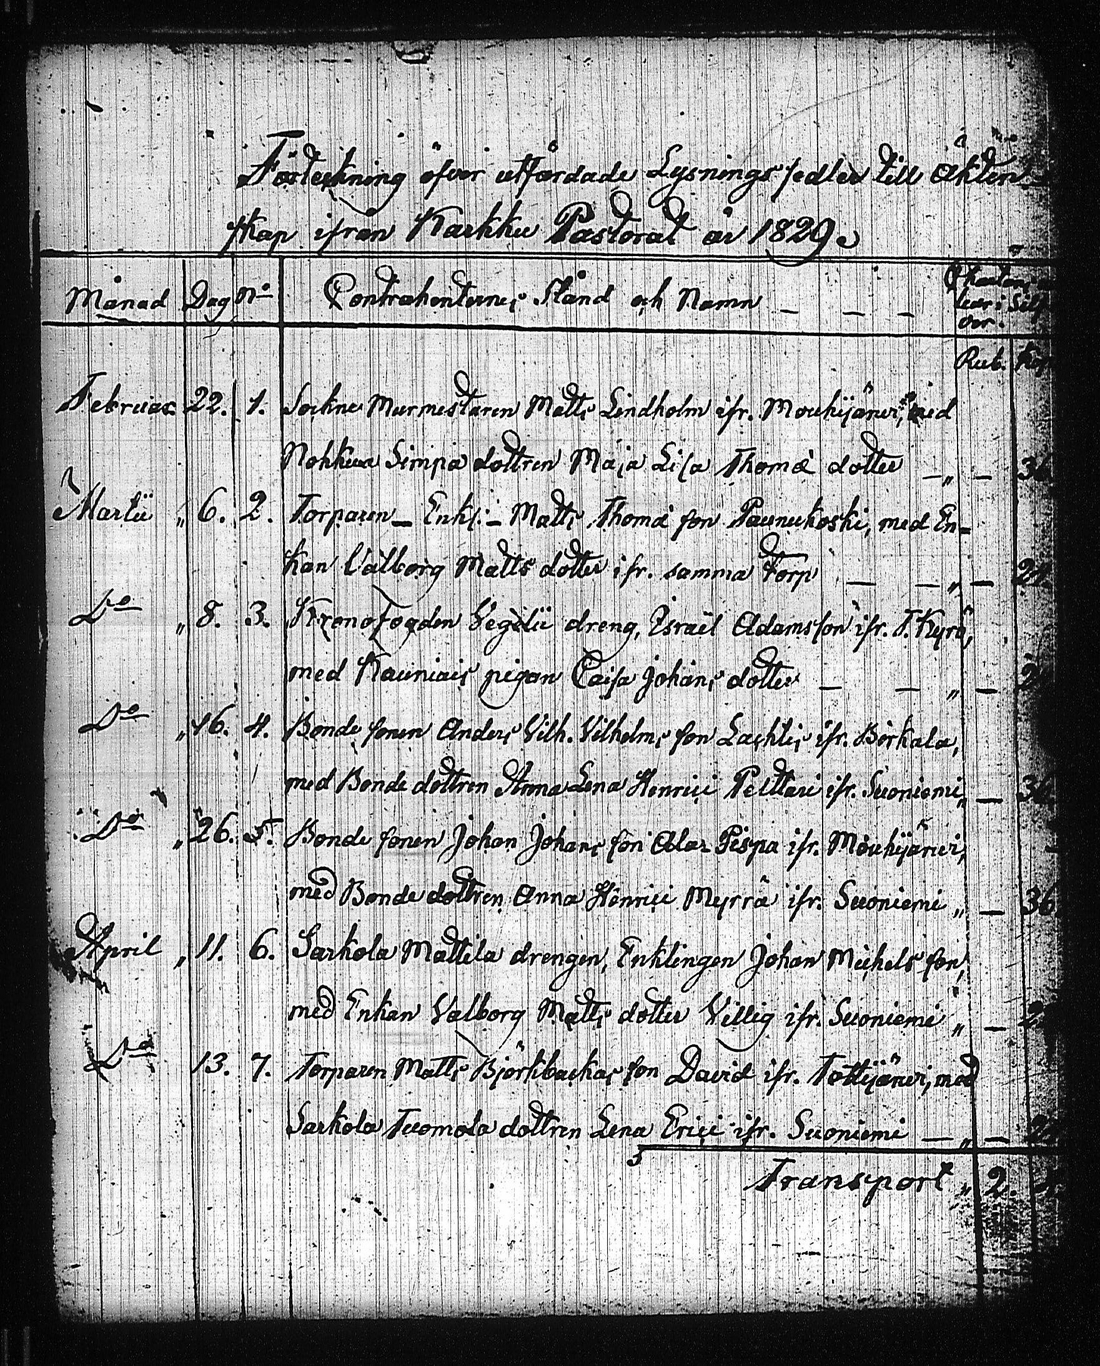 Förteckning öfver utfärdade Lysnings sedler till äkten
skap ifrån Karkku Pastorat år 1829.
Månad Dag No Contrahenternes Stånd och Namn
Rub. Kop
Februar. 22. 1. Sockne Murmestaren Matts Lindholm ifr. Mouhijärvi, med
Nohkua Simpa dottren Maja Lisa Thomæ dotter
Martii " 6. 2. Torparen Enkl: Matts Thomæ son Paunukoski, med En-
kan Valborg Matts dotter ifr. samma Torp
Do " 8. 3. Kronofogden Vegelii dreng, Israël Adamsson ifr. T. Kyrö,
med Kauniais pigan Caisa Johans dotter
Do " 16. 4. Bonde sonen Anders Vilh. Vilhelms son ifr. Birkala,
med Bonde dottren Anna Lena Henrici Pelttari ifr. Suoniemi
Do " 26. 5. Bonde sonen Johan Johans son Ala Pispa ifr. Mouhijärvi,
med Bonde dottren Anna Henrici Myrrä ifr. Suoniemi " 36
April " 11. 6. Sarkola Mattila drengen, Enklingen Johan Michels son,
med Enkan Valborg Matts dotter Villig ifr. Suoniemi "
Do 13. 7. Torparen Matts Björkbackas son David ifr. Tottijärvi, med
Sarkola Tuomola dottren Lena Erici ifr. Suoniemi
Transport " 2.